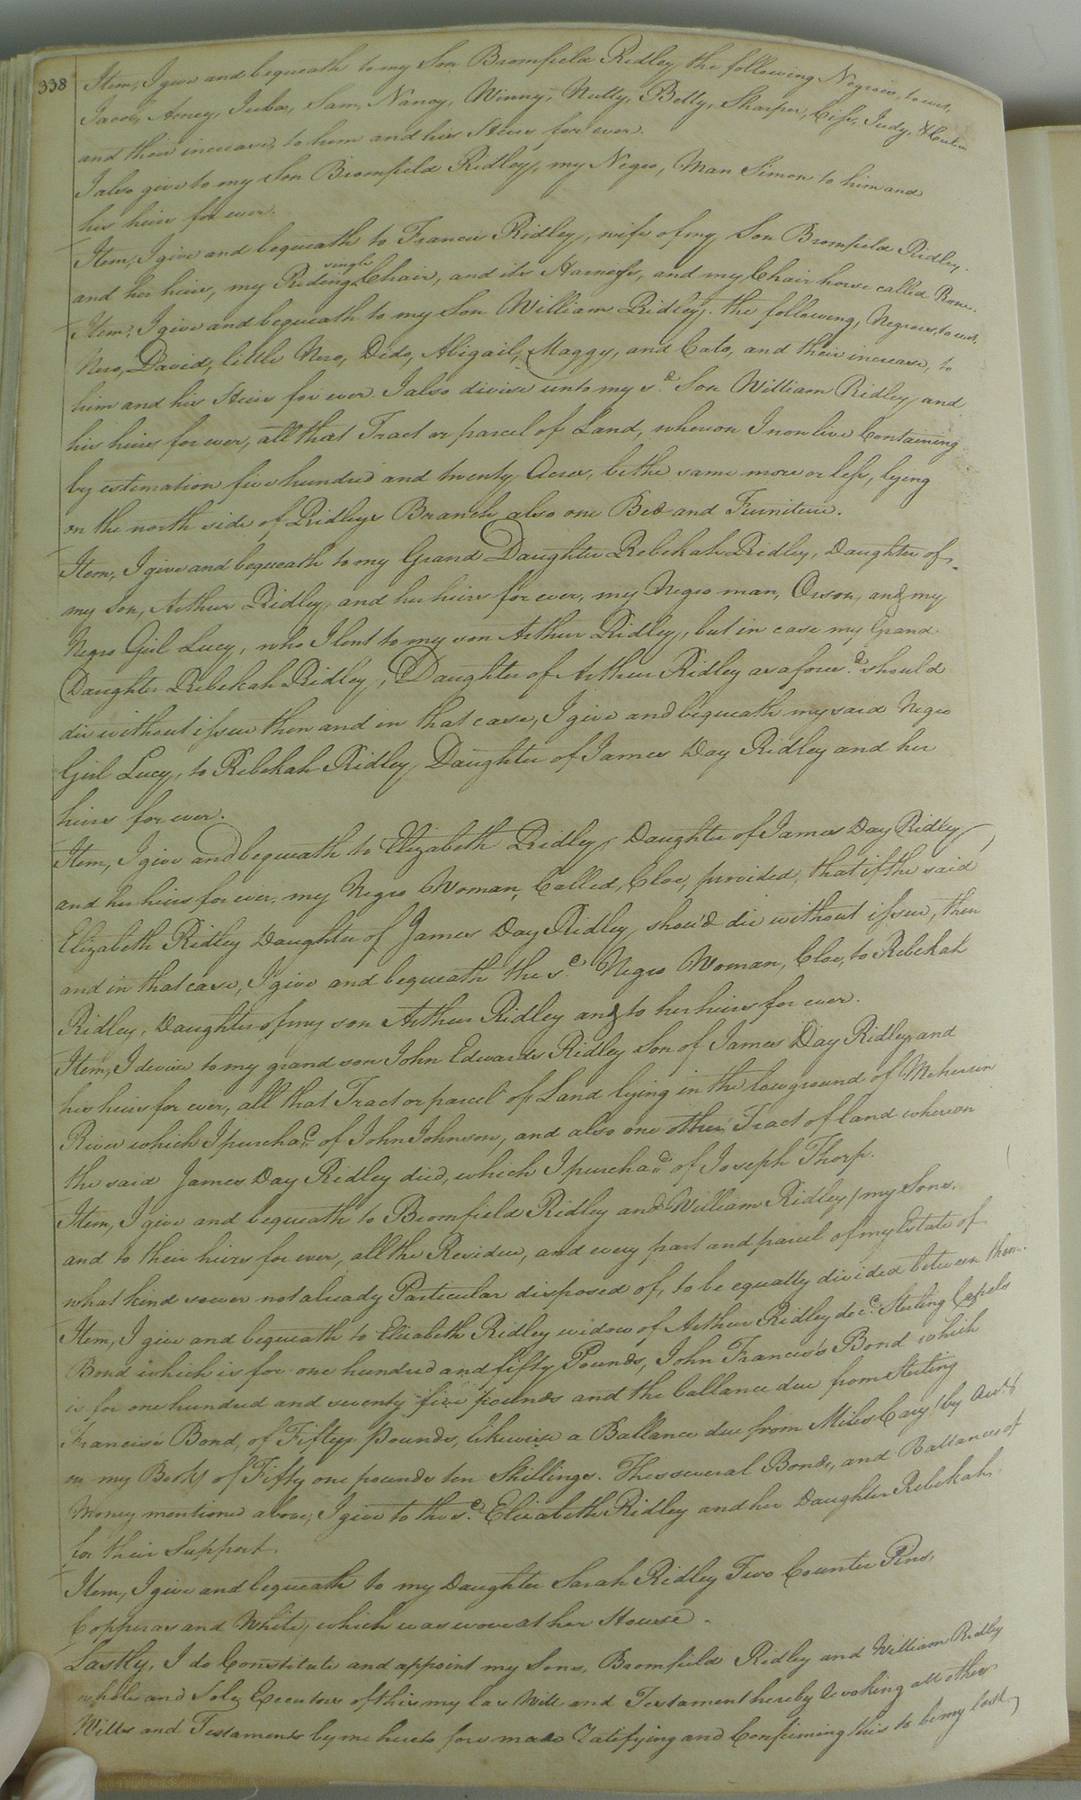 338
Item, I give and bequeath to my Son Bromfield Ridley the following Negroes, to wit,
Jacob, Amey, Juba, Sam, Nancy, Winny, Nutty, Botty, Sharper, Judy, &
and their increase, to him and his Heirs for ever.
I also give to my Son Bromfield Ridley, my Negro, Man Simon to him and
his heirs for ever.
Item, I give and bequeath to Frances Ridley, wife of my Son Bromfield Ridley.
and her heirs, my Riding single Chair, and its Harness, and my Chair horse called
Item, I give and bequeath to my Son William Ridley, the following, Negroes, to wit,
Nero, David, little Nero, Dido, Abigail, Maggy, and Cato, and their increase, to
him and his Heirs for ever. I also divise unto my sd. Son William Ridley, and
his heirs for ever, all that Tract or parcel of Land, whereon I now live Containing
by estimation five hundred and twenty, Acres, be the same more or less, lying
on the north side of Ridleys Branch also one Bed and Furniture.
Item, I give and bequeath to my Grand Daughter Rebekah Ridley, Daughter of
my Son, Arthur Ridley, and her heirs for ever, my Negro man, Orson, and my
Negro Girl Lucy, who I lent to my son Arthur Ridley, but in case my Grand
Daughter Rebekah Ridley, Daughter of Arthur Ridley as afores.d should
die without issue then and in that case, I give and bequeath my said Negro
Girl Lucy, to Rebekah Ridley, Daughter of James Day Ridley and her
heirs for ever.
Item, I give and bequeath to Elizabeth Ridley, Daughter of James Day Ridley,
and her heirs for ever, my Negro Woman, Called, Cloe, provided, that if the said
Elizabeth Ridley Daughter of James Day Ridley, shou'd die without issue, then
and in that case, I give and bequeath the sd. Negro Woman, Cloe, to Rebekah
Ridley, Daughter of my son Arthur Ridley and to her heirs for ever.
Item, I devise to my grand son John Edwards Ridley Son of James Day Ridley and
his heirs for ever, all that Tract or parcel of Land lying in the low ground of Meherrin
River which I purchad. of John Johnson, and also one other Tract of land whereon
the said James Day Ridley died, which I purchad. of Joseph Thorp.
Item, I give and bequeath to Bromfield Ridley and William Ridley, my Sons.
and to their heirs for ever, all the Residue, and every part and parcel of my Estate of
what kind soever not already Particular disposed of, to be equally divided between them.
Item, I give and bequeath to Elizabeth Ridley widow of Arthur Ridley decd. Sterling Capels
Bond which is for one hundred and fifty Pounds, John Francis's Bond which
is for one hundred and seventy five pounds and the ballance due from Sterling
Francis's Bond, of Fifteen Pounds, likewise a Ballance due from Miles Cary by
in my Books of Fifty one pounds ten Shillings. Thes several Bonds, and Ballances of
Money mentioned above, I give to the sd. Elizabeth Ridley and her Daughter Rebekah
for their Support.
Item, I give and bequeath to my Daughter Sarah Ridley Two Counter Pins,
Copperas and White, which was wove at her House.
Lastly, I do Constitute and appoint my Sons, Bromfield Ridley and William Ridley
whole and Sole Executors of this my las Will and Testament hereby revoking all other
Wills and Testaments by me hereto fore made Ratifying and Confirming this to be my last